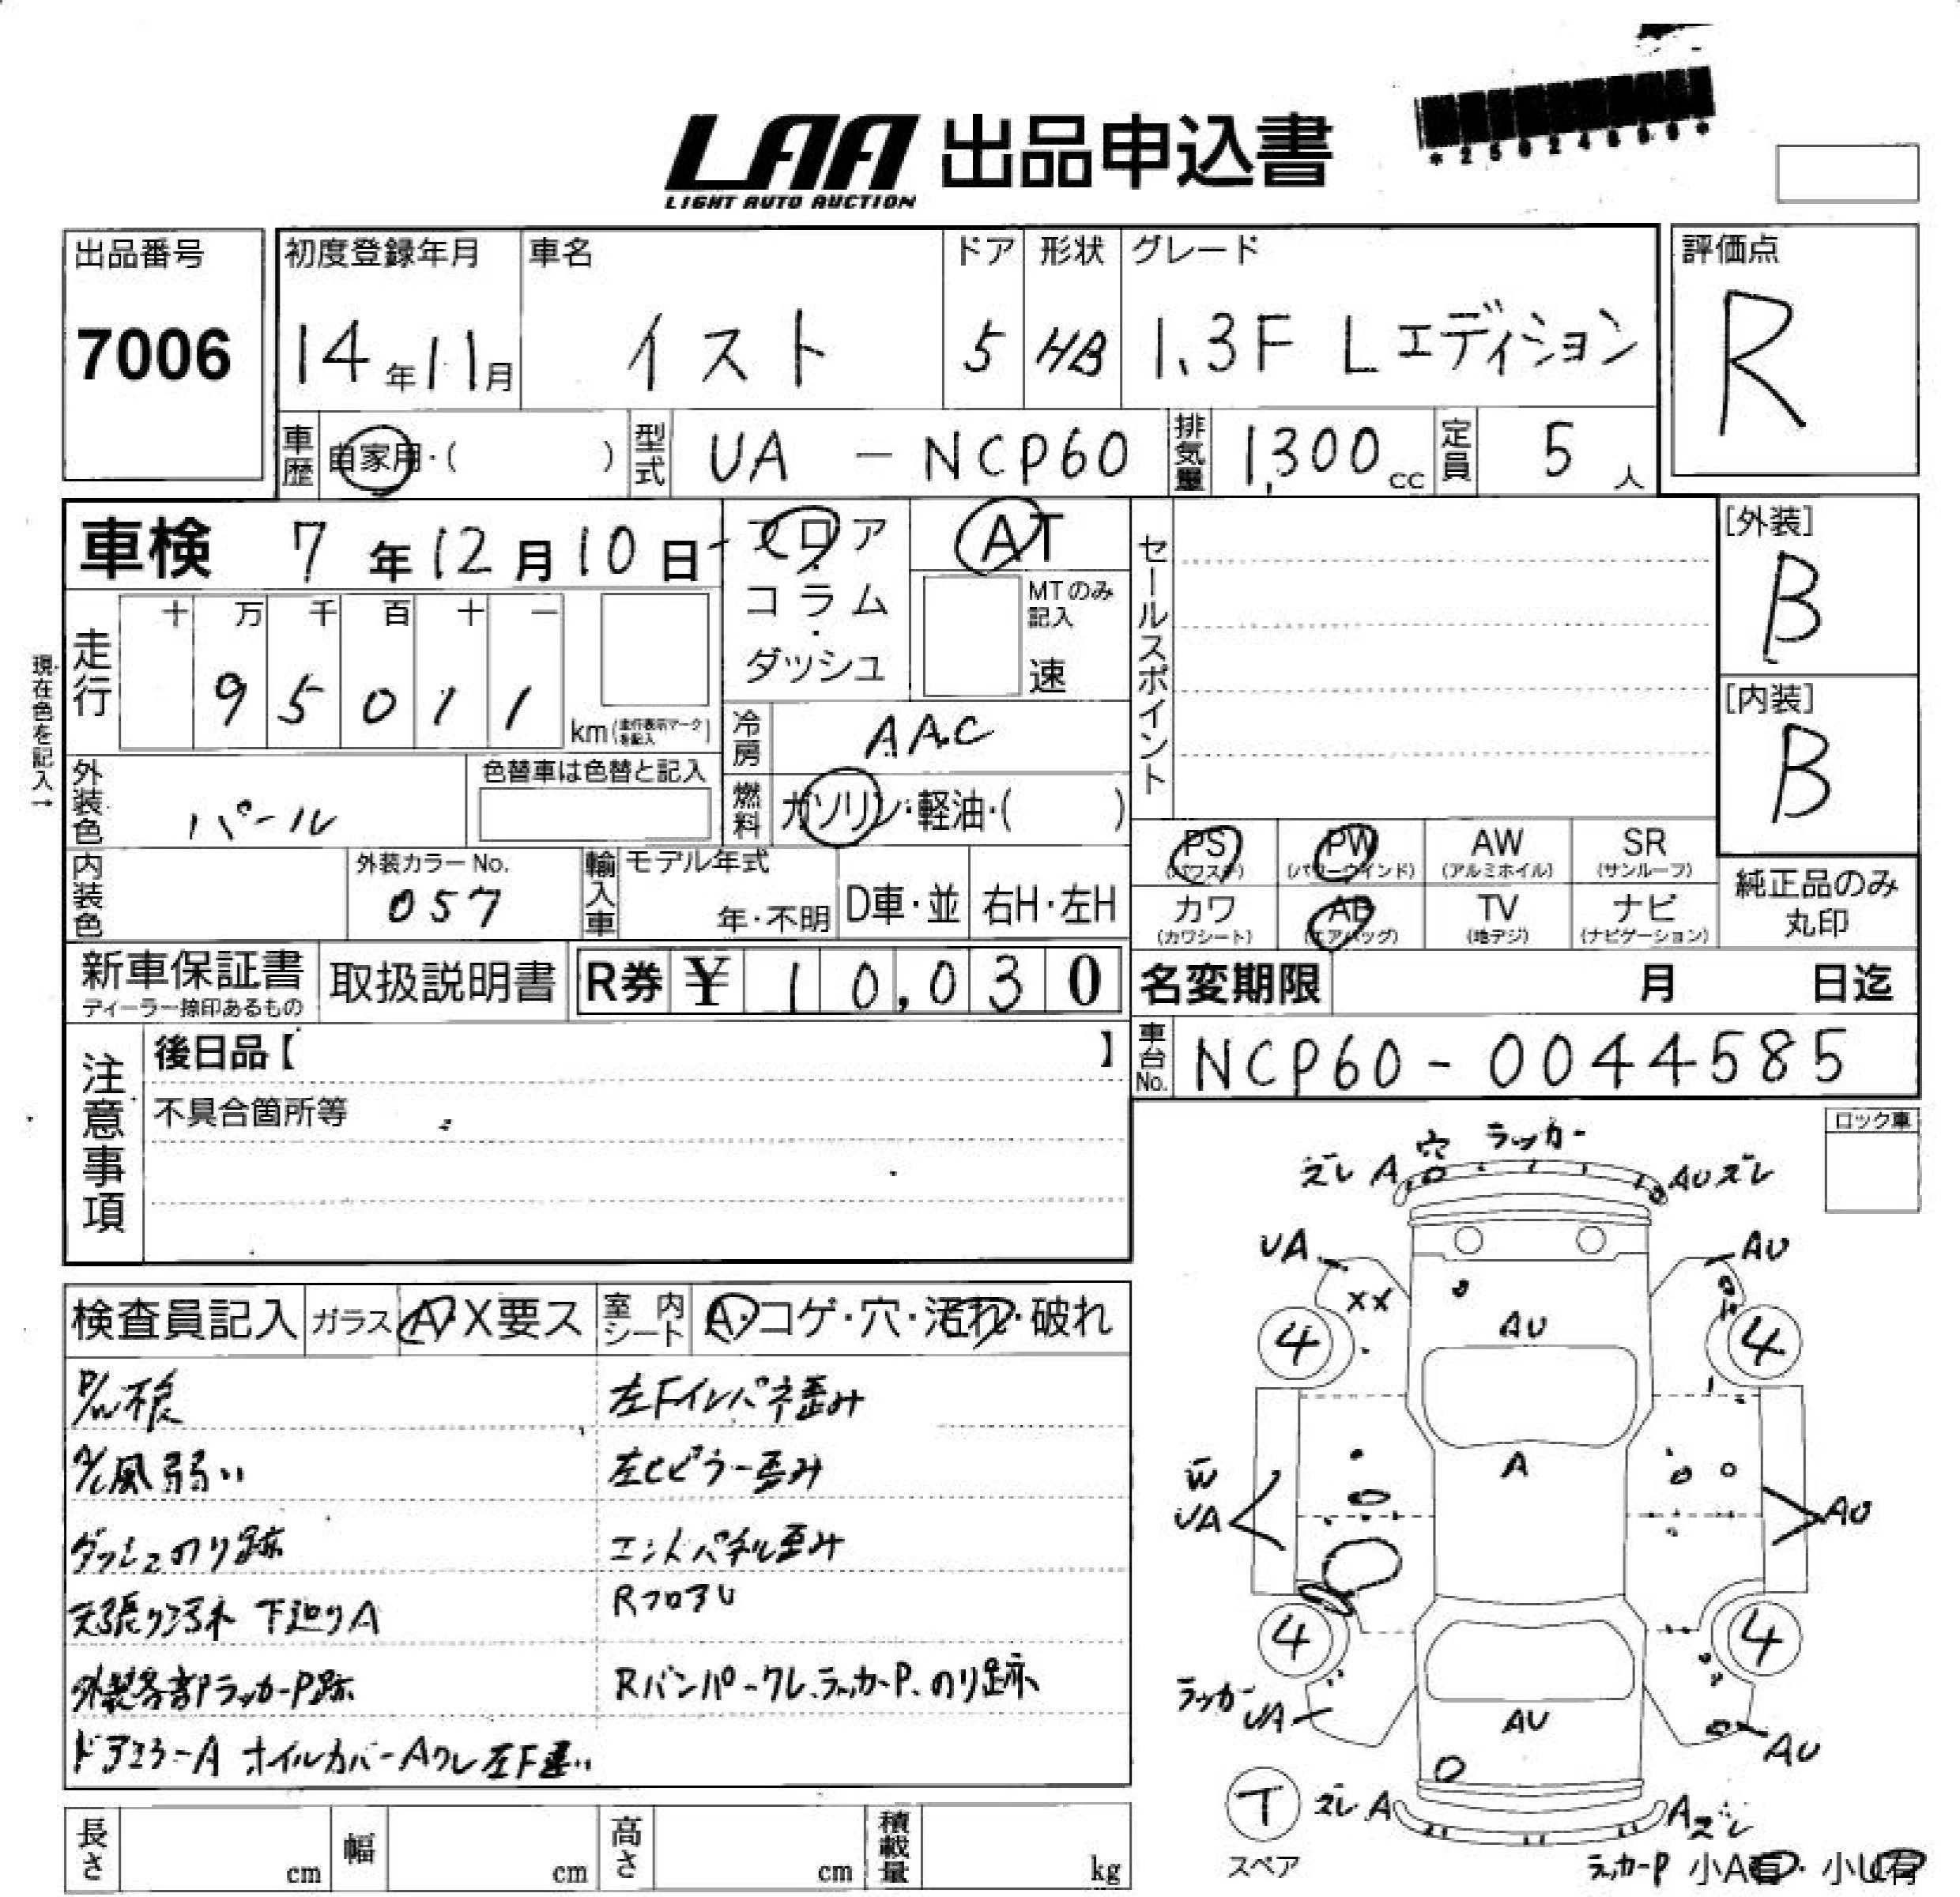 LAA 出品申込書
LIGHT AUTO AUCTION
出品番号
7006
初度登録年月
14年11月
車名
イスト
ドア
5
形状
HB
グレード
1.3F Lエディション
評価点
R
車歴
自家用・( )
型式
UA-NCP60
排気量
1,300cc
定員
5人
車検 7年12月10日
フロア
コラム
・
ダッシュ
AT
MTのみ
記入
速
セールスポイント
[外装]
B
[内装]
B
現在色を記入→
走行
十 万 千 百 十 一
9 5 0 1 1
km(走行表示マークを記入)
冷房
AAC
外装色
パール
色替車は色替と記入
燃料
ガソリン・軽油・( )
内装色
外装カラーNo.
057
輸入車
モデル年式
年・不明
D車・並
右H・左H
PS
(パワステ)
PW
(パワーウインド)
AW
(アルミホイル)
SR
(サンルーフ)
カワ
(カワシート)
AB
(エアバッグ)
TV
(地デジ)
ナビ
(ナビゲーション)
純正品のみ
丸印
新車保証書
ディーラー捺印あるもの
取扱説明書
R券 ¥ 10,030
名変期限 月 日迄
車台No.
NCP60-0044585
注意事項
後日品【 】
不具合箇所等
ロック車
検査員記入
ガラス
A・X要ス
室内シート
A・コゲ・穴・汚れ・破れ
P/W不良
A/C風弱い
ダッシュのり跡
天張り汚れ 下廻りA
外装各部Pラッカーp跡
ドアミラーA オイルカバーAワレ 左F
左Fインパネ歪み
左Cピラー歪み
エンドパネル歪み
RフロアU
Rバンパーワレ、ラッカーP、のり跡
ズレ A 穴 ラッカー AU ズレ
UA AU
XX
AU
4 4
A
W
UA AU
4 4
ラッカー
UA AU AU
T ズレ A A ズレ
スペア
ラッカーP 小A有・小U有
長さ cm
幅 cm
高さ cm
積載量 kg